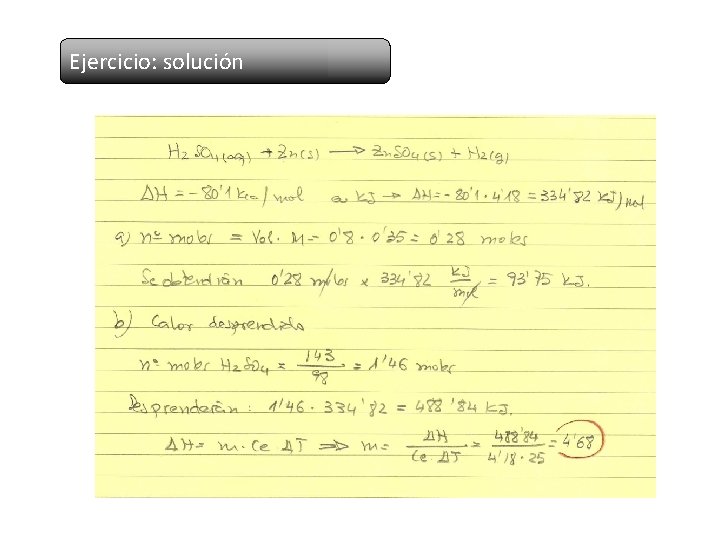 Ejercicio: solución
H2SO4(aq) + Zn(s) → ZnSO4(s) + H2(g)
ΔH = - 80'1 Kca/mol a KJ → ΔH = - 80'1 · 4'18 = 334'82 KJ/mol
a) nº moles = Vol. M = 0'8 · 0'35 = 0'28 moles
Se obtendrán 0'28 moles x 334'82 KJ/mol = 93'75 KJ.
b) Calor desprendido
nº moles H2SO4 = 143/98 = 1'46 moles
Desprenderán: 1'46 · 334'82 = 488'84 KJ.
ΔH = m · Ce ΔT ⇒ m = ΔH/Ce ΔT = 488'84/4'18 · 25 = 4'68